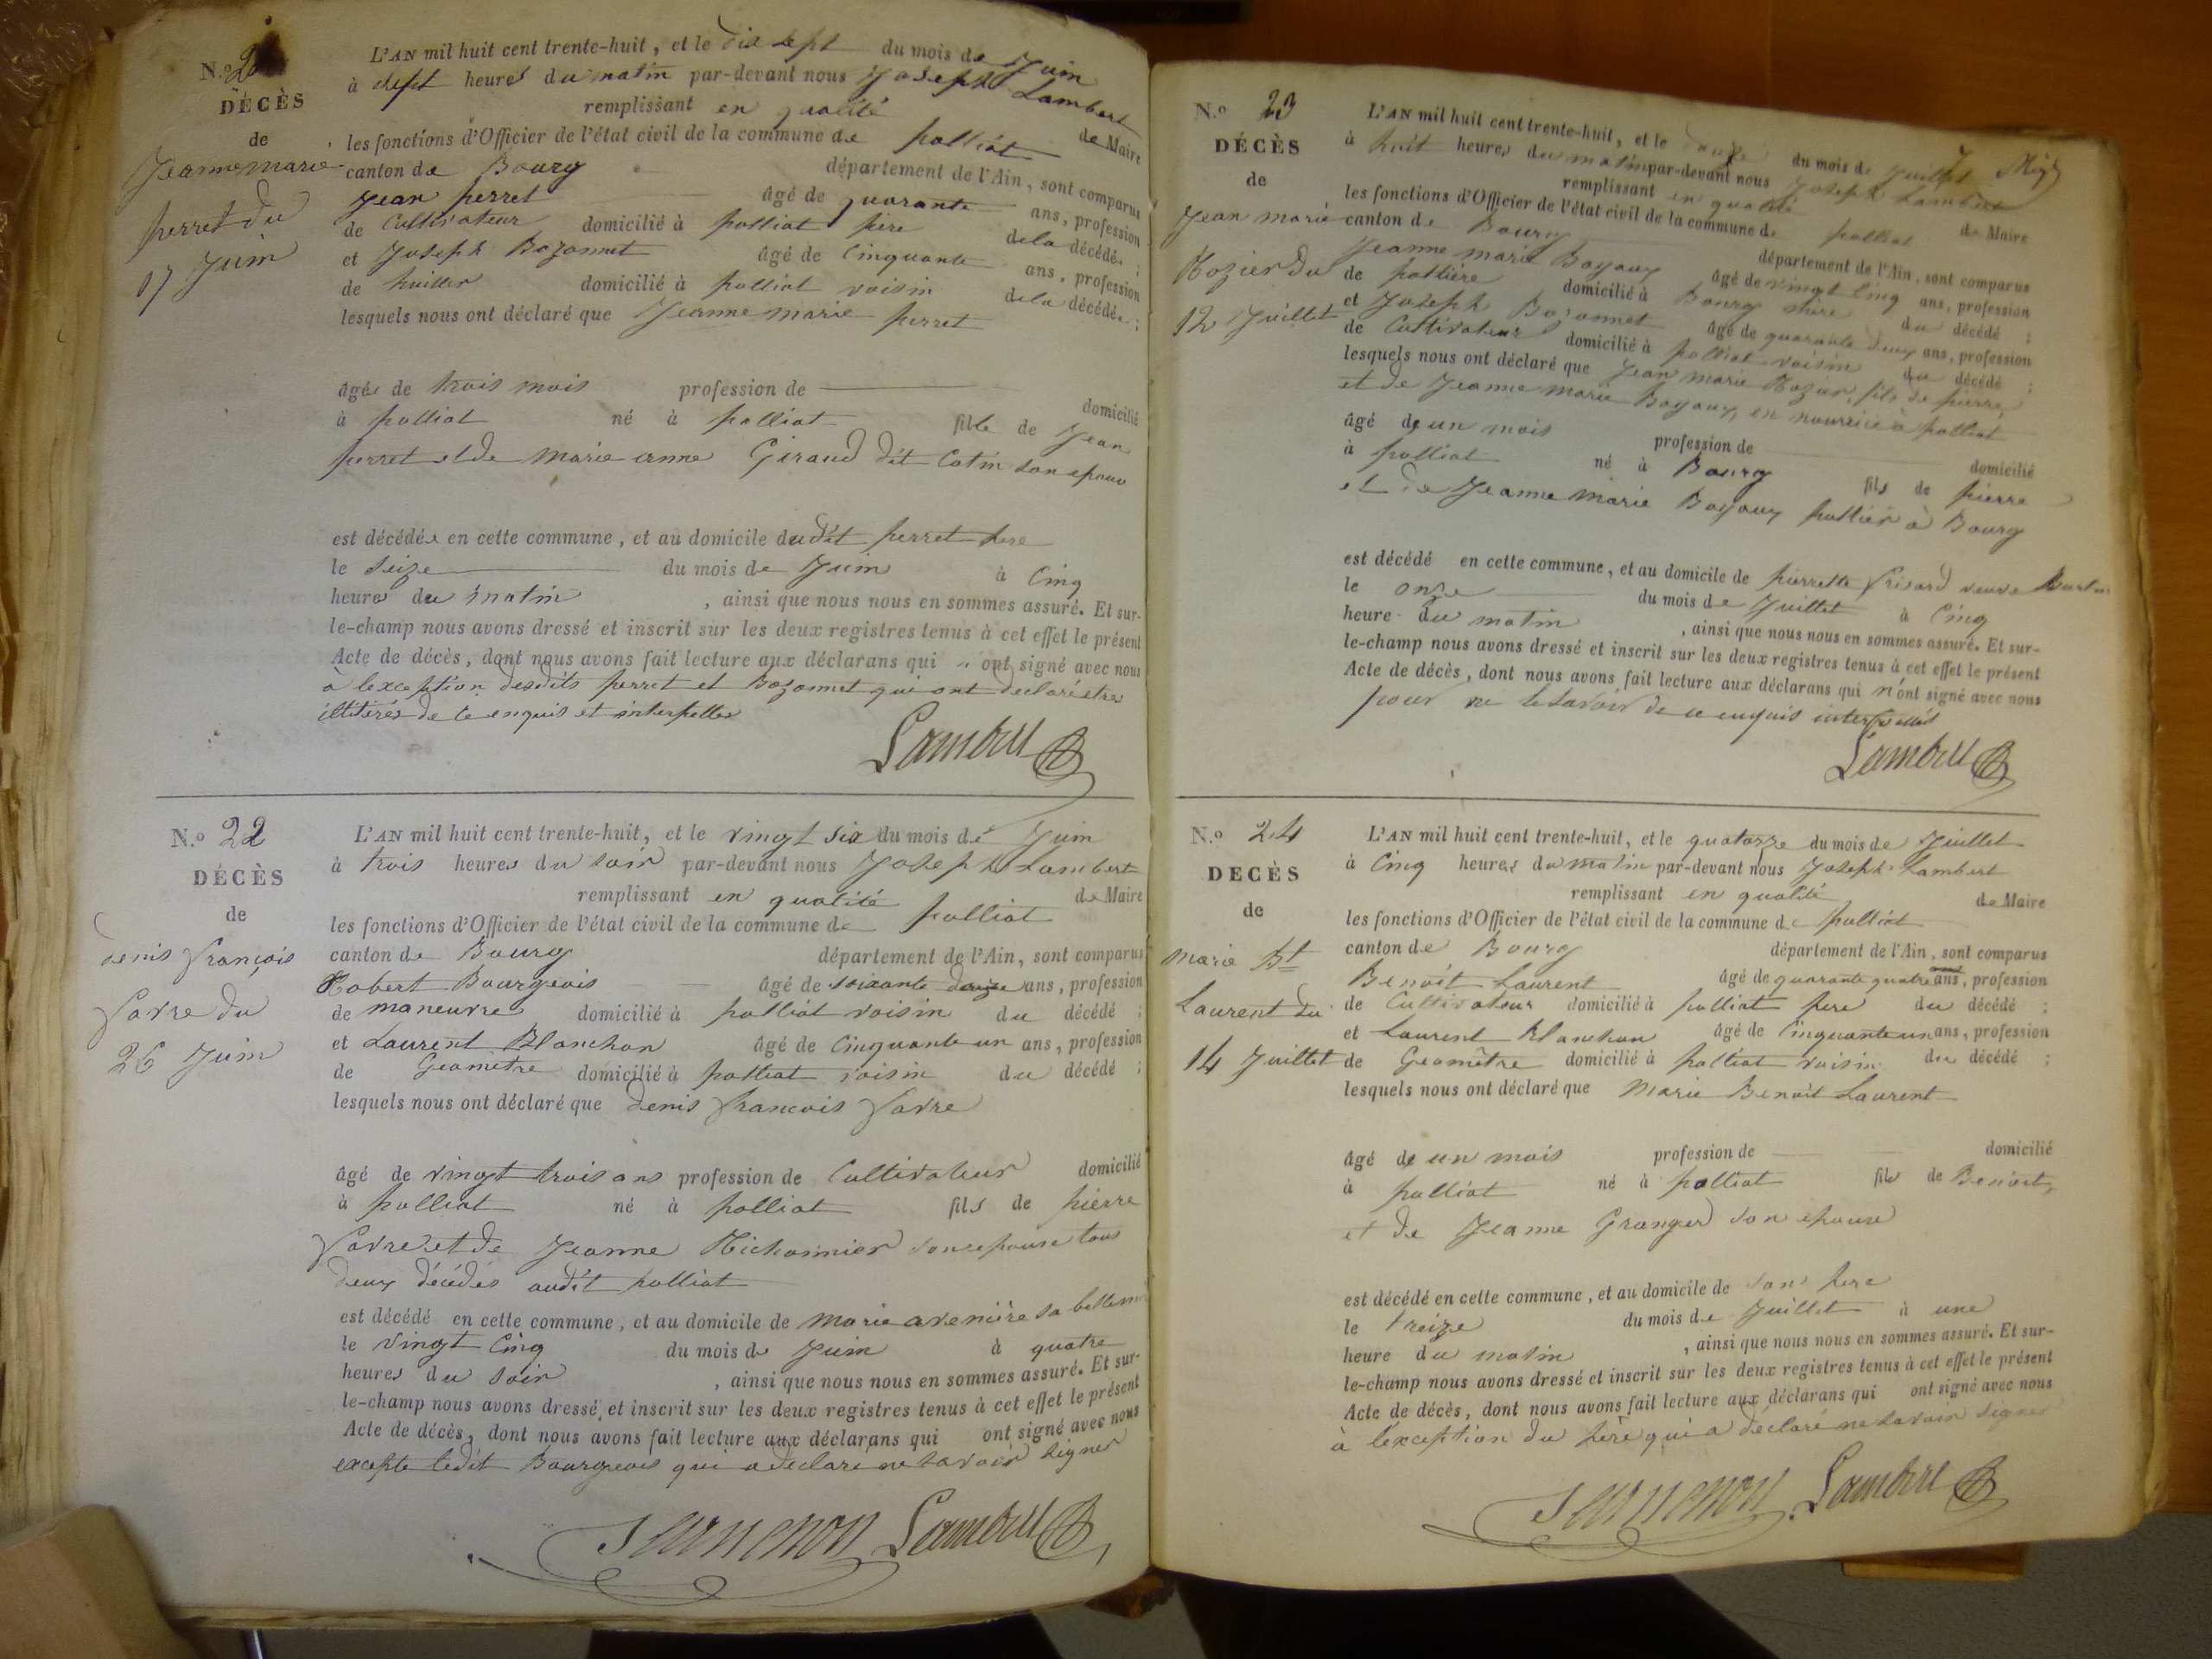 N.o
DÉCÈS
de
Jeanne marie
perret du
17 Juin
L'AN mil huit cent trente-huit, et le dix sept du mois de Juin
à sept heures du matin par-devant nous Joseph Lambert
remplissant en qualité de Maire
les fonctions d'Officier de l'état civil de la commune de polliat
canton de Bourg département de l'Ain, sont comparus
Jean perret âgé de quarante ans, profession
de Cultivateur domicilié à polliat père de la décédée ;
et Joseph Bozonnet âgé de Cinquante ans, profession
de huillier domicilié à polliat voisin de la décédée ;
lesquels nous ont déclaré que Jeanne marie perret
âgée de trois mois profession de domicilié
à polliat né à polliat fille de Jean
perret et de marie anne Giraud dit Catin son epouse
est décédée en cette commune, et au domicile dudit perret pere
le Seize du mois de Juin à Cinq
heures du matin , ainsi que nous nous en sommes assuré. Et sur-
le-champ nous avons dressé et inscrit sur les deux registres tenus à cet effet le présent
Acte de décès, dont nous avons fait lecture aux déclarans qui ont signé avec nous
à lexception desdits perret et Bozonnet qui ont declaré etre
illiterés de ce enquis et interpellés
Lambert
N.o 22
DÉCÈS
de
denis françois
favre du
26 Juin
L'AN mil huit cent trente-huit, et le vingt six du mois de Juin
à trois heures du soir par-devant nous Joseph Lambert
remplissant en qualité de Maire
les fonctions d'Officier de l'état civil de la commune de polliat
canton de Bourg département de l'Ain, sont comparus
Robert Bourgeois âgé de soixante douze ans, profession
de maneuvre domicilié à polliat voisin du décédé ;
et Laurent Blanchon âgé de Cinquante un ans, profession
de Geomètre domicilié à polliat voisin du décédé ;
lesquels nous ont déclaré que denis francois favre
âgé de vingt trois ans profession de Cultivateur domicilié
à polliat né à polliat fils de pierre
favre et de Jeanne Michonnier son epouse tous
deux décédés audit polliat
est décédé en cette commune, et au domicile de marie avenière sa belle
le vingt Cinq du mois de Juin à quatre
heures du soir , ainsi que nous nous en sommes assuré. Et sur-
le-champ nous avons dressé et inscrit sur les deux registres tenus à cet effet le présent
Acte de décès, dont nous avons fait lecture aux déclarans qui ont signé avec nous
excepte ledit Bourgeois qui a declaré ne savoir signer
Lambert
N.o 23
DÉCÈS
de
Jean marie
Rozier du
12 Juillet
L'AN mil huit cent trente-huit, et le douze du mois de Juillet
à huit heures du matin par-devant nous Joseph Lambert
remplissant en qualité de Maire
les fonctions d'Officier de l'état civil de la commune de polliat
canton de Bourg département de l'Ain, sont comparus
Jeanne marie Boyoux âgé de vingt Cinq ans, profession
de domicilié à Bourg mère du décédé ;
et Joseph Bozonnet âgé de quarante deux ans, profession
de Cultivateur domicilié à polliat voisin du décédé ;
lesquels nous ont déclaré que Jean marie Rozier, fils de pierre,
et de Jeanne marie Boyoux, en nourrice à polliat
âgé de un mois profession de domicilié
à polliat né à Bourg fils de pierre
et de Jeanne Marie Boyoux à Bourg
est décédé en cette commune, et au domicile de pierrette veuve
le onze du mois de Juillet à Cinq
heure du matin , ainsi que nous nous en sommes assuré. Et sur-
le-champ nous avons dressé et inscrit sur les deux registres tenus à cet effet le présent
Acte de décès, dont nous avons fait lecture aux déclarans qui n'ont signé avec nous
pour ne le savoir de ce enquis interpellés
Lambert
N.o 24
DECÈS
de
marie Bt
Laurent du
14 Juillet
L'AN mil huit cent trente-huit, et le quatorze du mois de Juillet
à Cinq heures du matin par-devant nous Joseph Lambert
remplissant en qualité de Maire
les fonctions d'Officier de l'état civil de la commune de polliat
canton de Bourg département de l'Ain, sont comparus
Benoit Laurent âgé de quarante quatre ans, profession
de Cultivateur domicilié à polliat pere du décédé ;
et Laurent Blanchon âgé de Cinquante un ans, profession
de Geomètre domicilié à polliat voisin du décédé ;
lesquels nous ont déclaré que Marie Benoit Laurent
âgé de un mois profession de domicilié
à polliat né à polliat fils de Benoit,
et de Jeanne Granger son epouse
est décédé en cette commune, et au domicile de son pere
le treize du mois de Juillet à une
heure du matin , ainsi que nous nous en sommes assuré. Et sur-
le-champ nous avons dressé et inscrit sur les deux registres tenus à cet effet le présent
Acte de décès, dont nous avons fait lecture aux déclarans qui ont signé avec nous
à l'exception du père qui a declaré ne savoir signer
Lambert